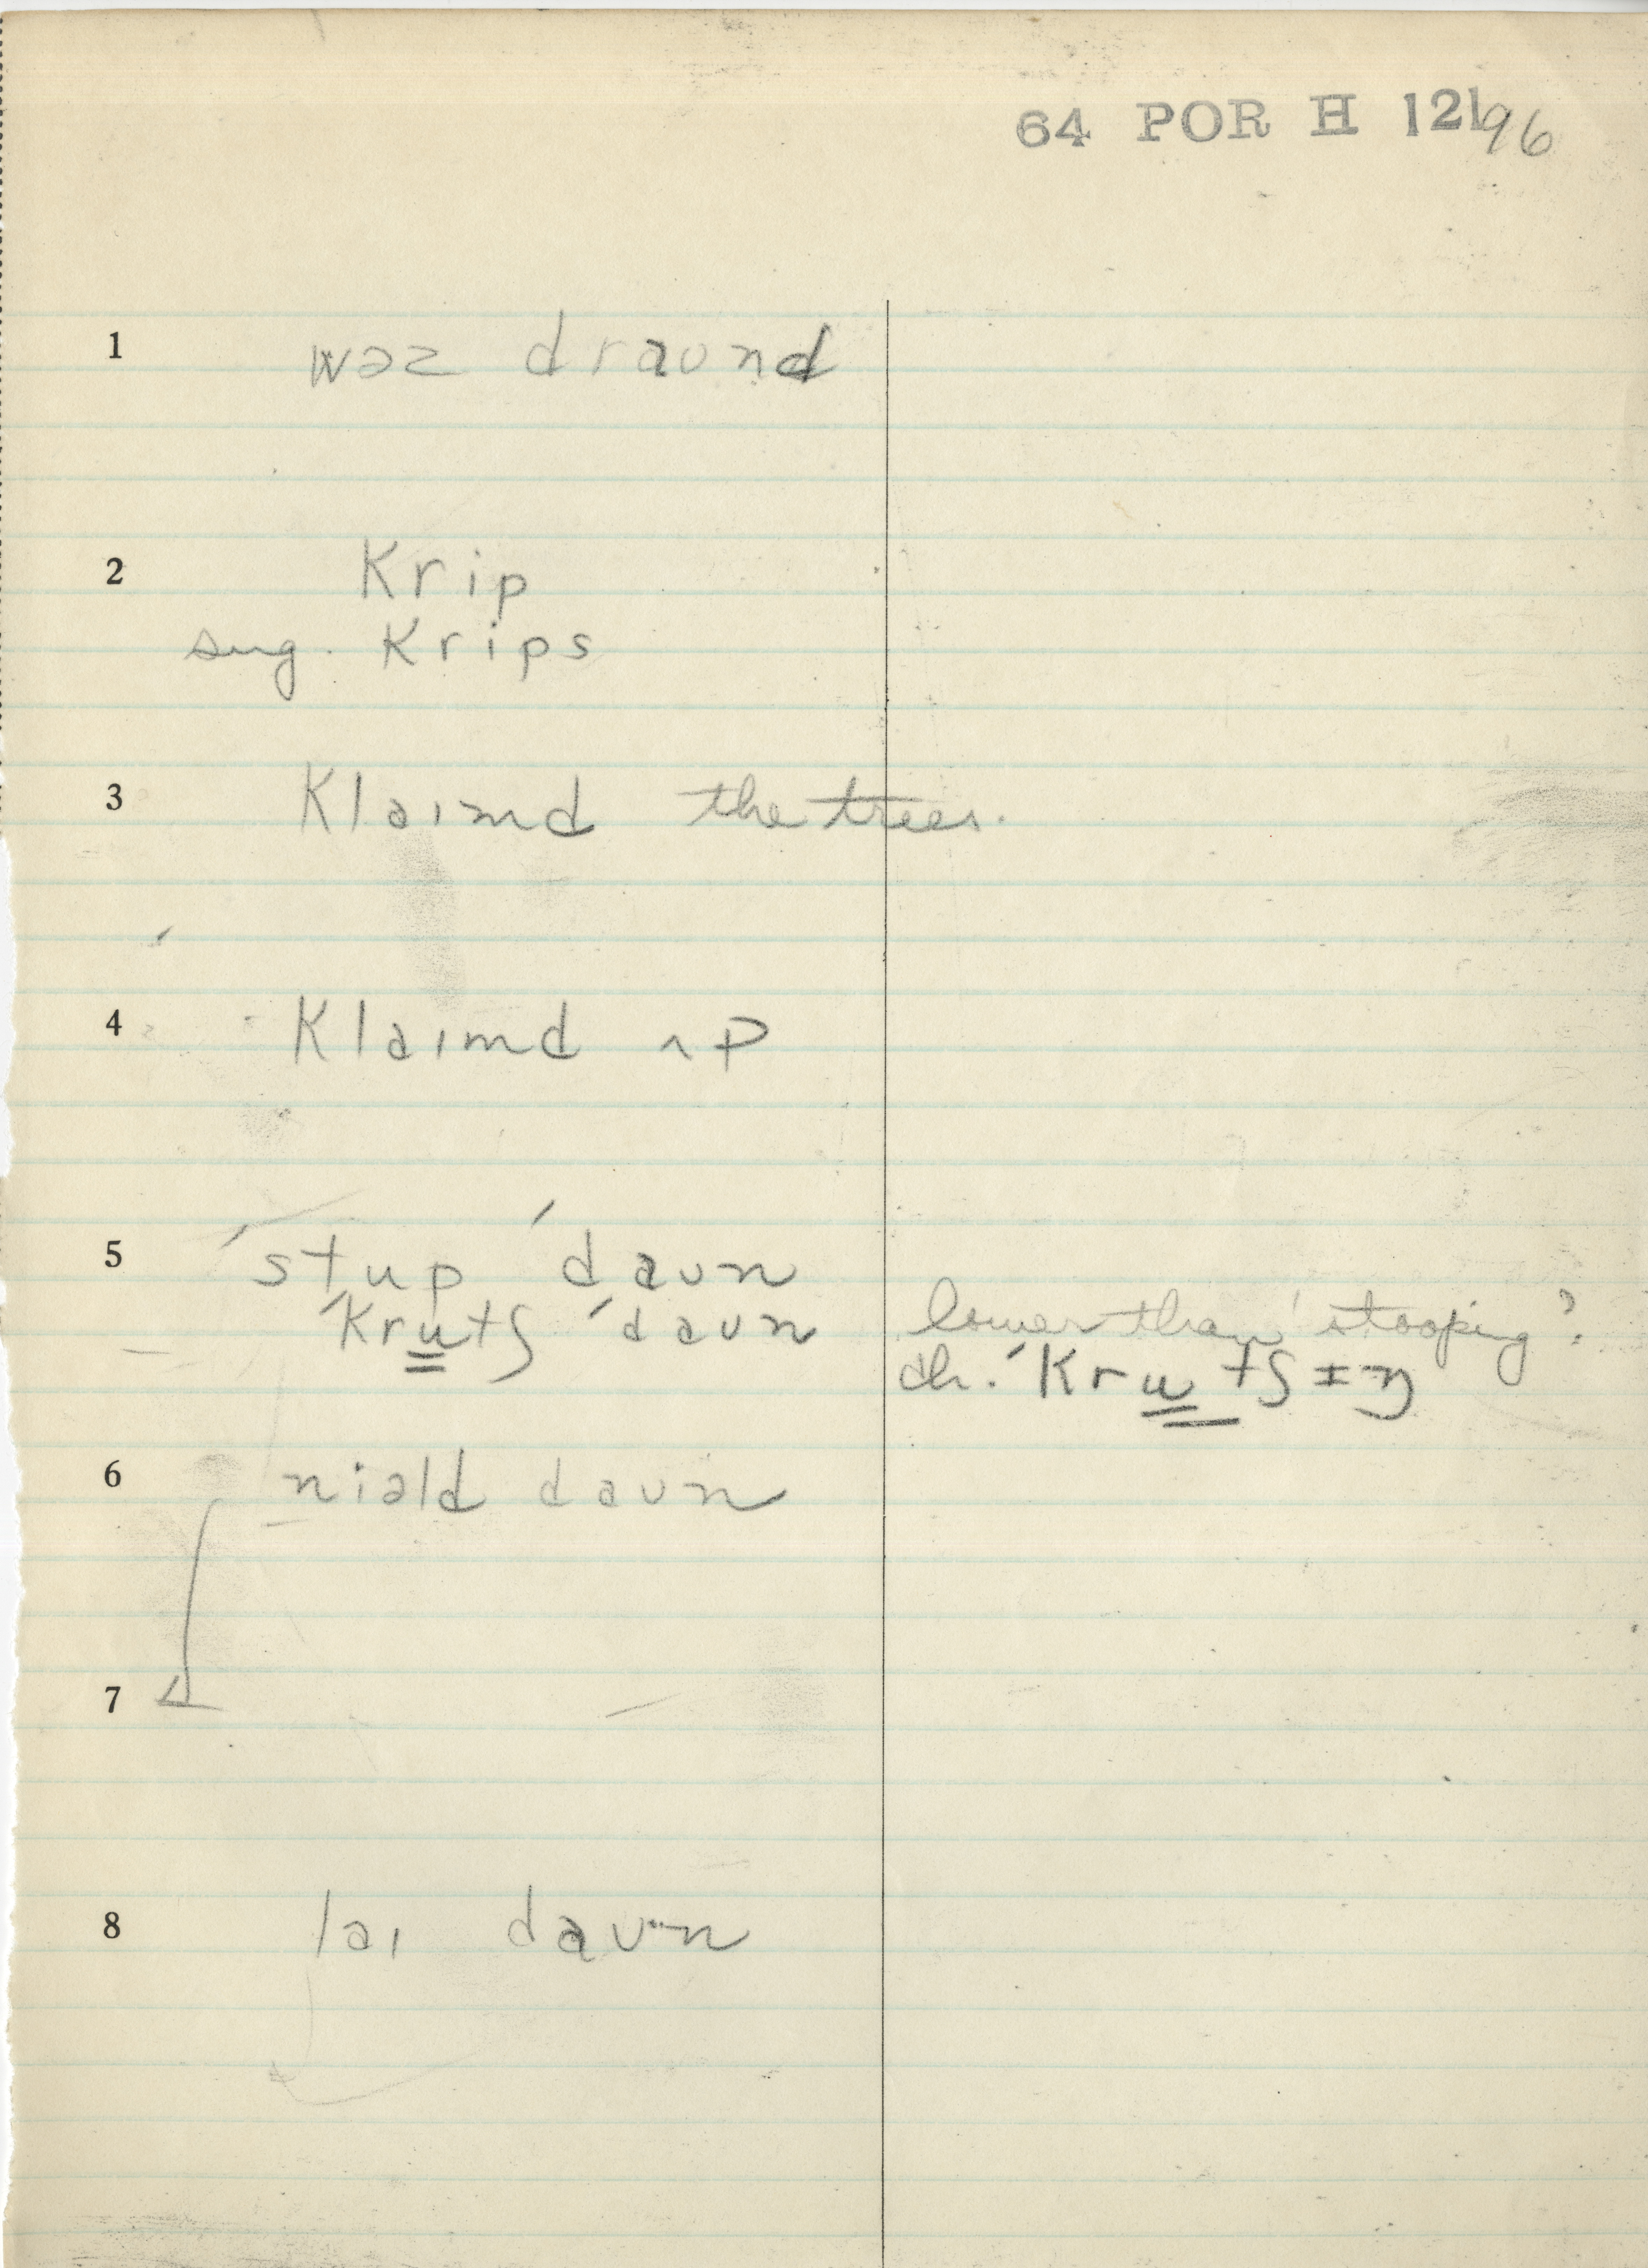 64 POR H 12\96
1 wəz draʊnd
2 krip
sug. krips
3 klaɪmd the trees.
4 klaɪmd ʌp
5 ˈstup ˈdaʊn
ˈkrutʃ ˈdaʊn lower than 'stooping'?
ˈkrutʃɪŋ
6 niəld daʊn
7
8 laɪ daʊn